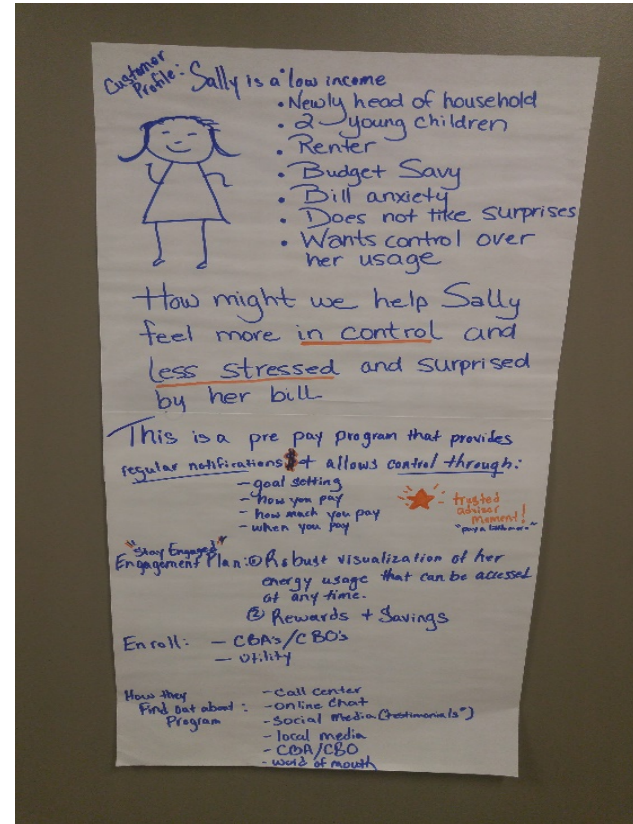 Customer
Profile: Sally is a low income
• Newly head of household
• 2 young children
• Renter
• Budget Savy
• Bill anxiety
• Does not like surprises
• Wants control over
her usage
How might we help Sally
feel more in control and
less stressed and surprised
by her bill.
This is a pre pay program that provides
regular notifications + allows control through:
- goal setting
- how you pay
- how much you pay
- when you pay
trusted
advisor
moment!
"Stay Engaged"
Engagement Plan: ① Robust visualization of her
energy usage that can be accessed
at any time.
② Rewards + Savings
Enroll: - CBA's/CBO's
- Utility
How they
Find out about
Program :
- call center
- online chat
- social media ("testimonials")
- local media
- CBA/CBO
- word of mouth